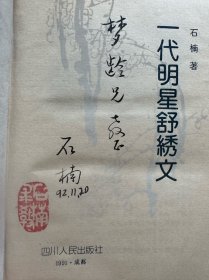 石楠 著
一代明星舒绣文
梦龄兄
正
石楠
92.11.20
四川人民出版社
1991·成都